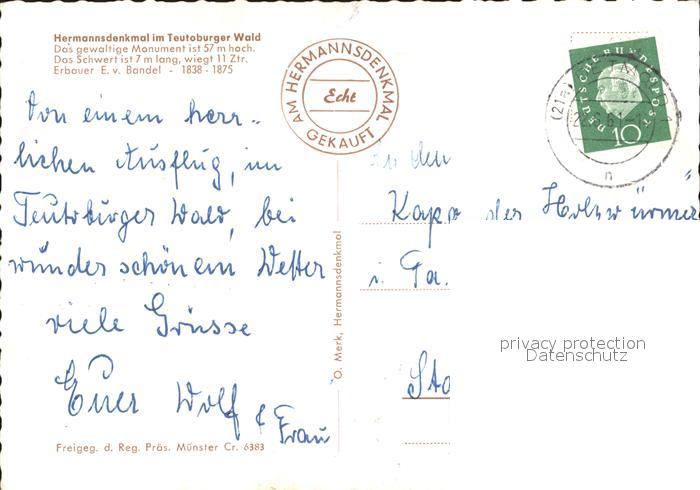 Hermannsdenkmal im Teutoburger Wald
Das gewaltige Monument ist 57 m hoch.
Das Schwert ist 7 m lang, wiegt 11 Ztr.
Erbauer E. v. Bandel - 1838 - 1875
AM HERMANNSDENKMAL
Echt
GEKAUFT
Von einem herr-
lichen Ausflug, im
Teutoburger Wald, bei
wunderschönem Wetter
viele Grüsse
Euer Wolf & Frau
Freigeg. d. Reg. Präs. Münster Cr. 6383
O. Merk, Hermannsdenkmal
DEUTSCHE BUNDESPOST
10
(21a)
n
den
der Holzwürmer"
i. Fa.
privacy protection
Datenschutz